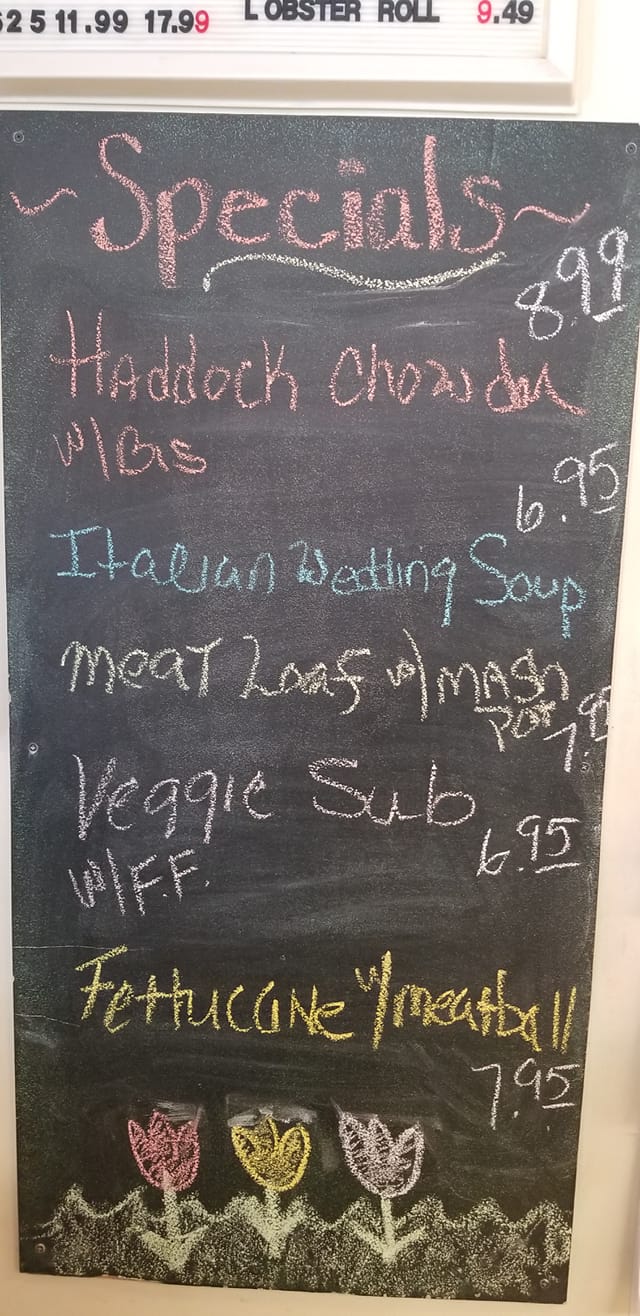 62 5 11.99 17.99 LOBSTER ROLL 9.49
~Specials~
8.99
Haddock Chowder
w/
6.95
Italian Wedding Soup
Meat Loaf w/ mash
Pot 7.95
Veggie Sub
6.95
w/F.F.
Fettucane w/meatball
7.95